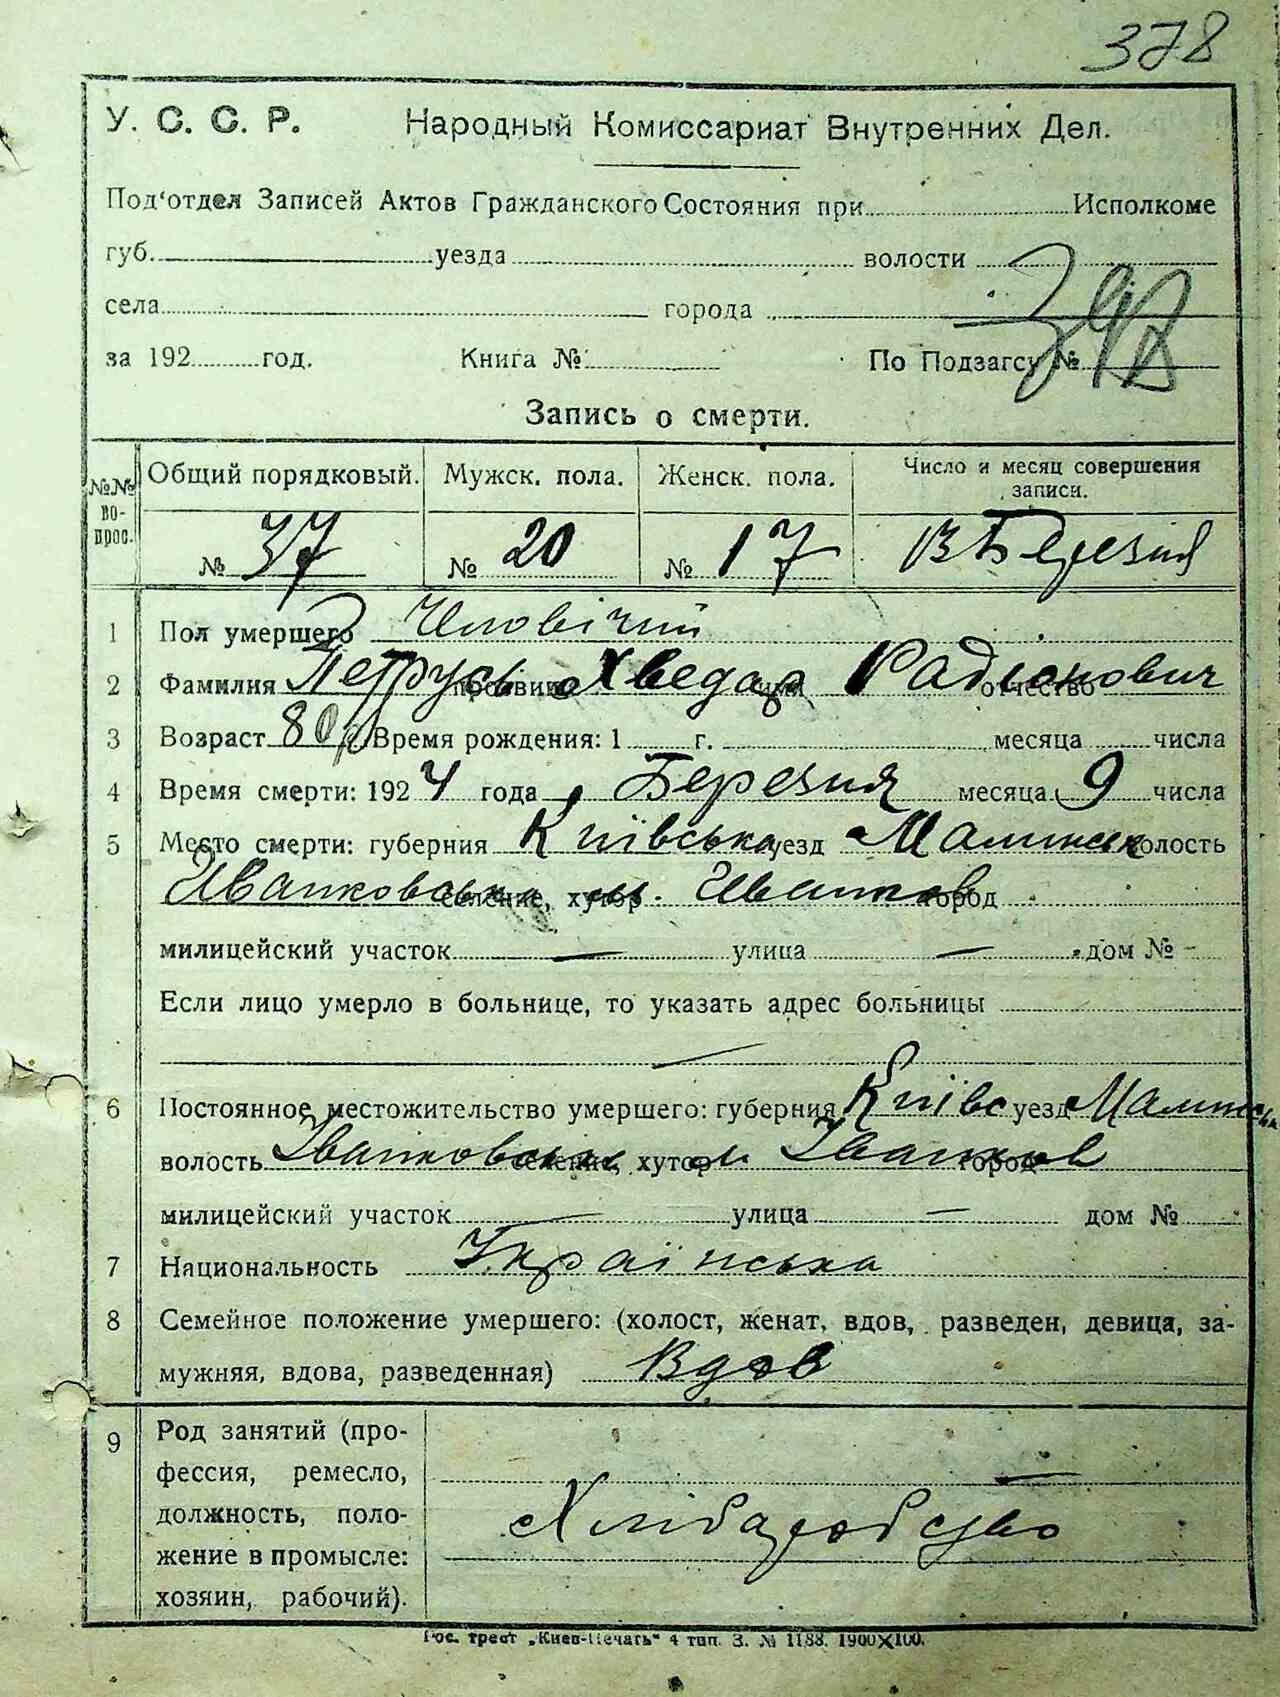 378
У. С. С. Р. Народный Комиссариат Внутренних Дел.
Под'отдел Записей Актов Гражданского Состояния при Исполкоме
губ. уезда волости
села города
за 192 год. Книга № По Подзагсу №
Запись о смерти.
№№ во- прос. Общий порядковый. Мужск. пола. Женск. пола. Число и месяц совершения записи.
№ 37 № 20 № 17 Березня
1 Пол умершего Чловічий
2 Фамилия Петрусь прозвище Хведар имя Радіонович отчество
3 Возраст 80 Время рождения: 1 г. месяца числа
4 Время смерти: 1924 года Березня месяца 9 числа
5 Место смерти: губерния Київська уезд Малинськ волость
Иванковська селение, хутор м. Иванков город
милицейский участок — улица — дом № -
Если лицо умерло в больнице, то указать адрес больницы
—
6 Постоянное местожительство умершего: губерния Київс уезд Малинськ
волость Іванковська селение, хутор м Іванков город
милицейский участок — улица — дом №
7 Национальность Українська
8 Семейное положение умершего: (холост, женат, вдов, разведен, девица, за-
мужняя, вдова, разведенная) Вдов
9 Род занятий (про-
фессия, ремесло,
должность, поло- Хлібаробство
жение в промысле:
хозяин, рабочий).
Гос. трест „Киев-Печать" 4 тип. З. № 1188. 1900X100.